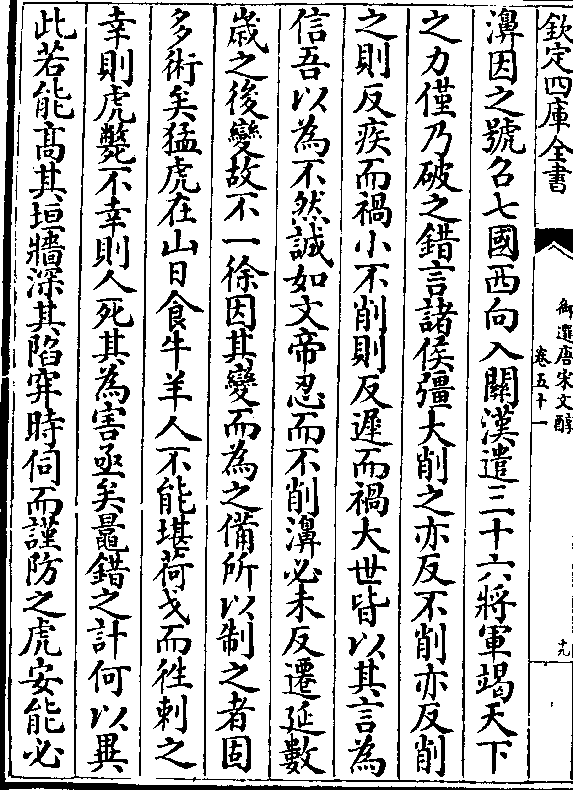 欽定四庫全書
御選唐宋文醇
卷五十一
十九
濞因之號召七國西向入關漢遣三十六將軍竭天下
之力僅乃破之錯言諸侯彊大削之亦反不削亦反削
之則反疾而禍小不削則反遲而禍大世皆以其言為
信吾以為不然誠如文帝忍而不削濞必未反遷延數
歲之後變故不一徐因其變而為之備所以制之者固
多術矣猛虎在山日食牛羊人不能堪荷戈而往刺之
幸則虎斃不幸則人死其為害亟矣鼂錯之計何以異
此若能高其垣牆深其陷穽時伺而謹防之虎安能必